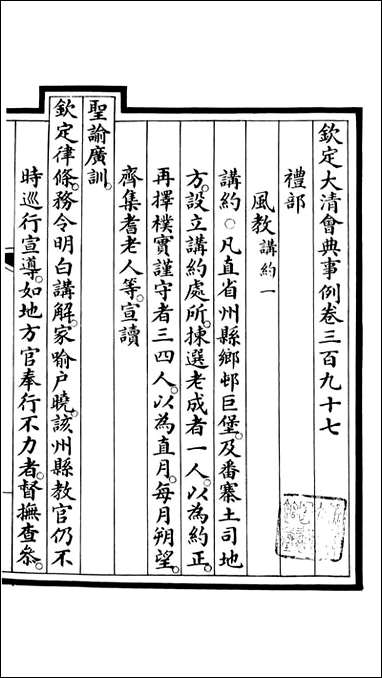 欽定大清會典事例卷三百九十七
禮部
風教講約一
講約〇凡直省州縣鄉邨巨堡。及番寨土司地
方。設立講約處所。揀選老成者一人。以為約正。
再擇樸實謹守者三四人。以為直月。每月朔望。
齊集耆老人等。宣讀
聖諭廣訓。
欽定律條。務令明白講解。家喻戶曉。該州縣教官仍不
時巡行宣導。如地方官奉行不力者。督撫查參。